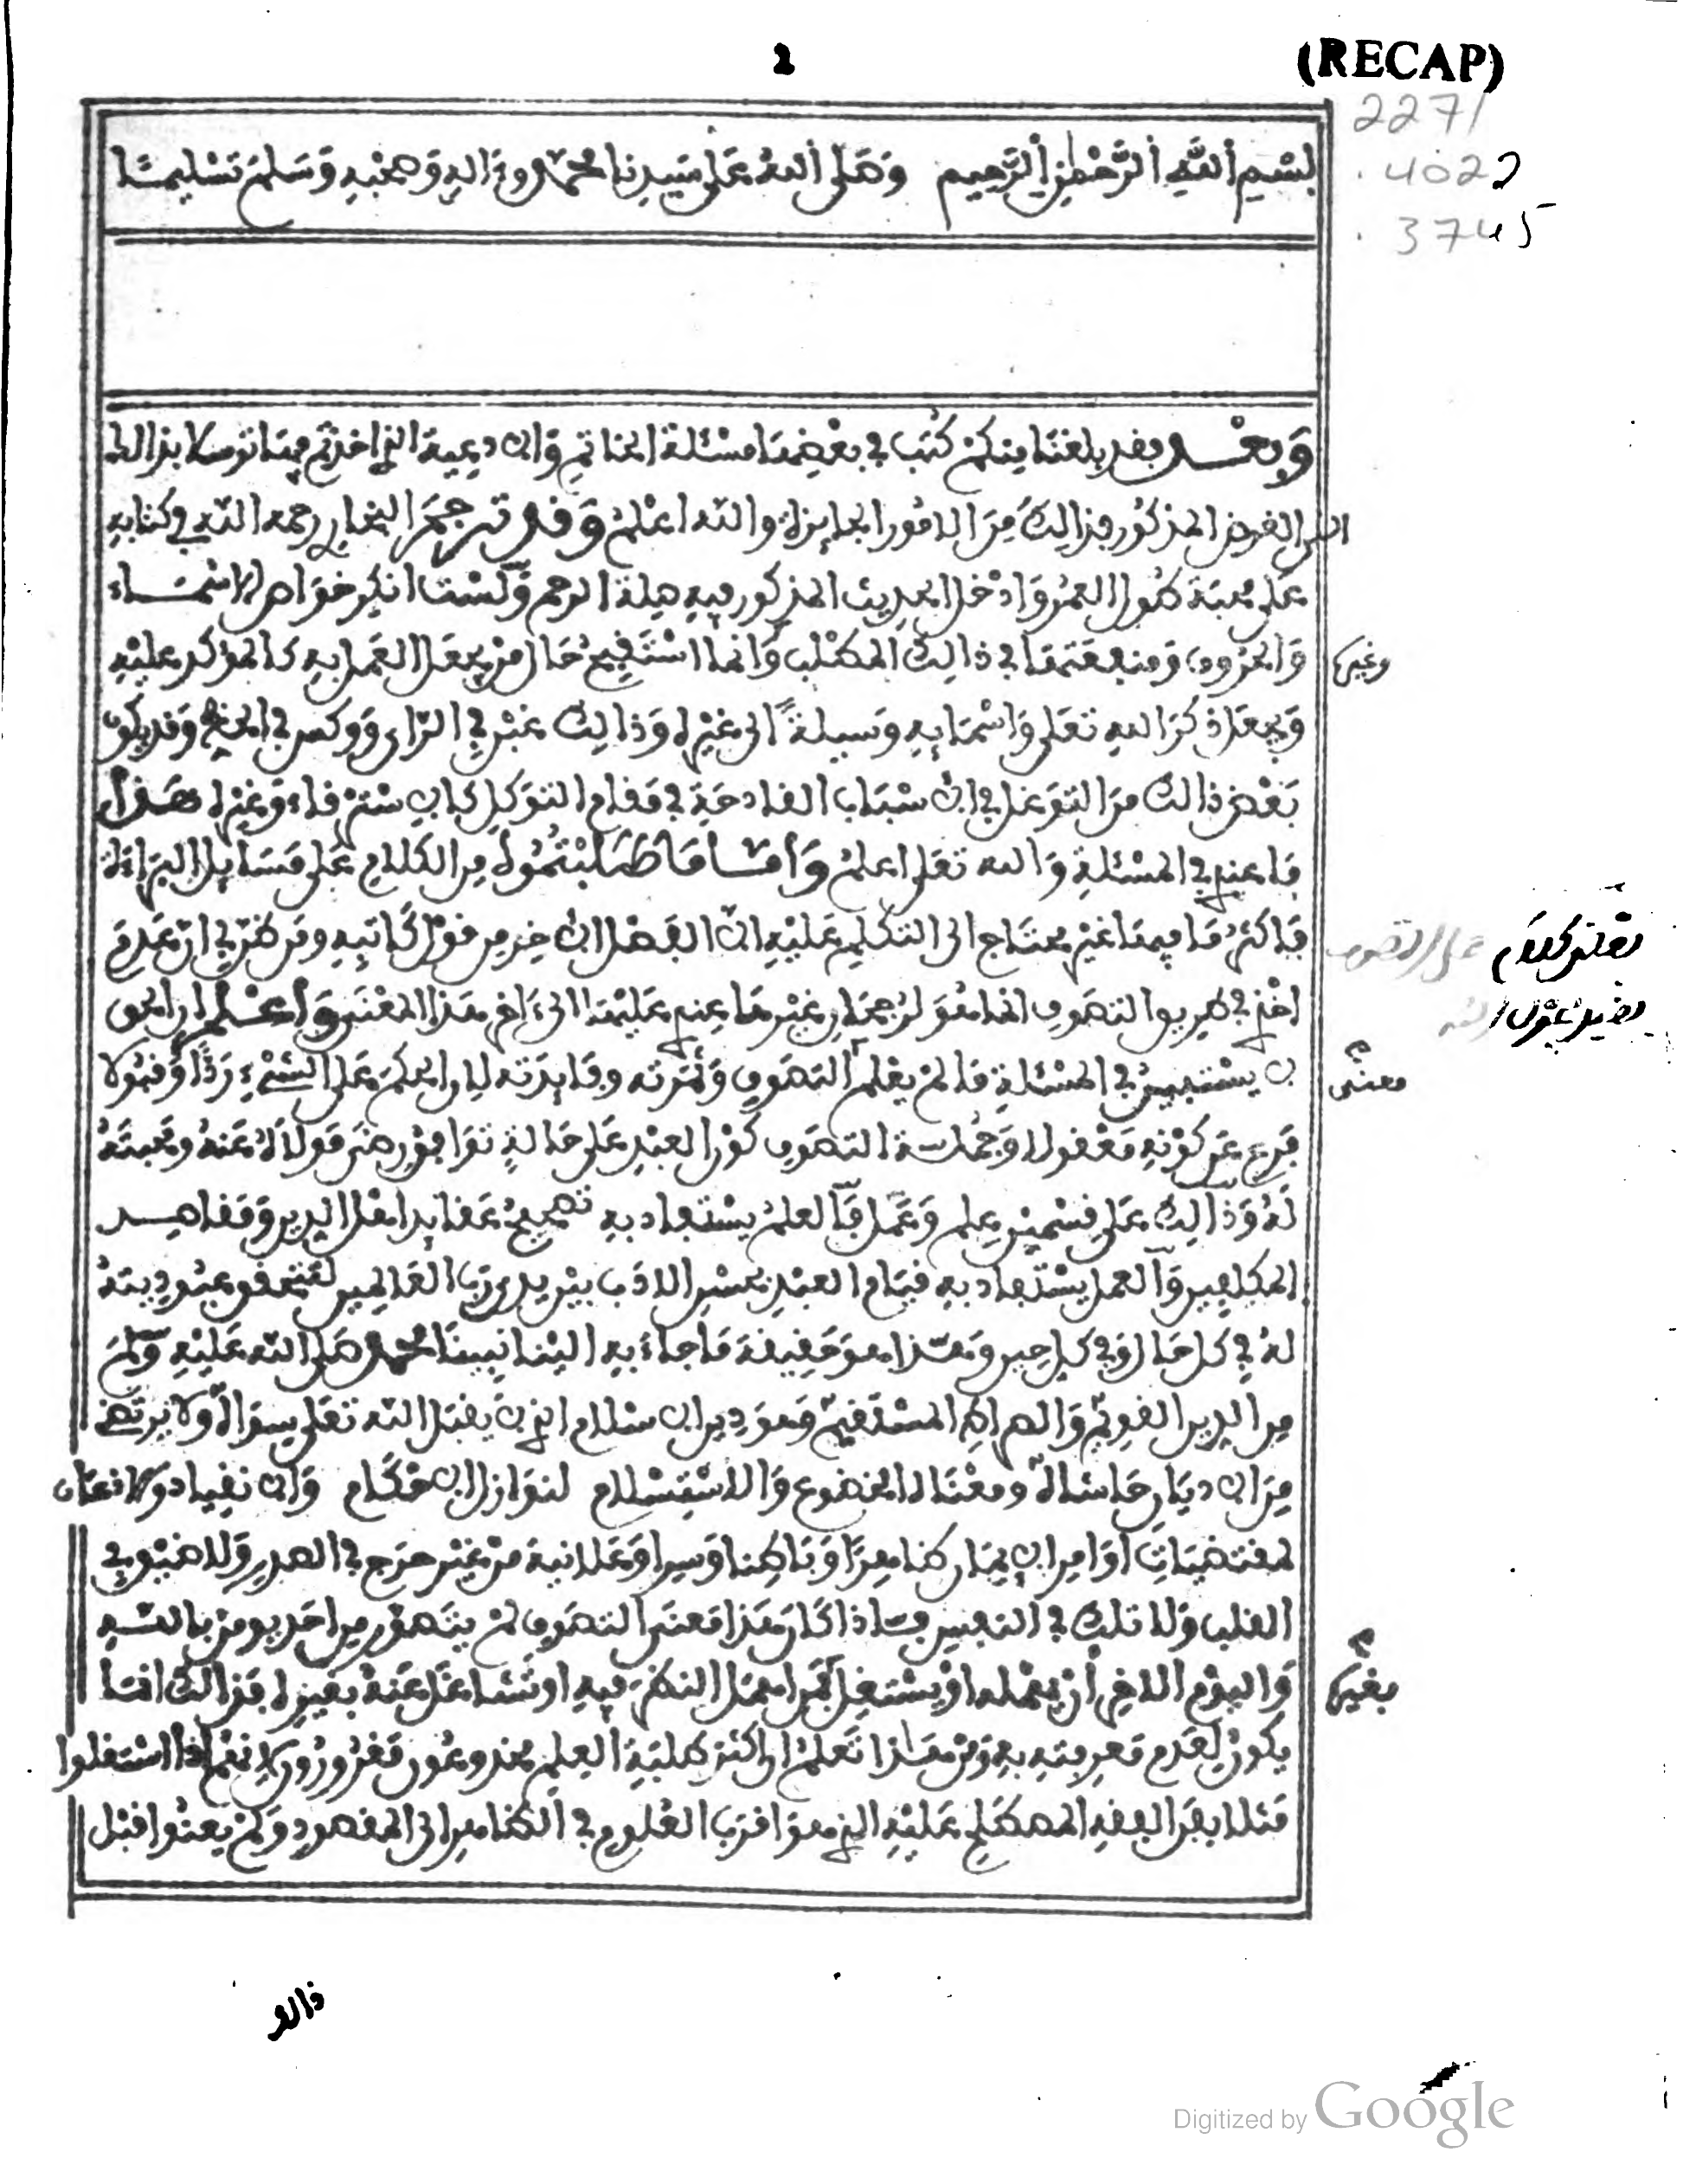 2
(RECAP)
2271
.4022
.3745
بِسْمِ اللَّهِ الرَّحْمَٰنِ الرَّحِيمِ وَصَلَّى اللهُ عَلَى سَيِّدِنَا مُحَمَّدٍ وَءَالِهِ وَصَحْبِهِ وَسَلَّمَ تَسْلِيمًا
وَبَعْد فقد بلغنا منكم كتب في بعضها مسئلة الخاتم والادعية التي اخذتم فيها توسلا بذالك
الى الغرض المذكور فذالك من الامور الجايزة والله اعلم وقد ترجم البخاري رحمه الله في كتابه
على محبة طول العمر وادخل الحديث المذكور فيه صلة الرحم ولست انكر خواص الاسماء
والحروف ومنفعتها في ذالك المطلب وانما استقبح حال من يجعل العمل به كالمؤكد عليه
وغيرها
ويجعل ذكر الله تعلى واسمايه وسيلة الى غيره وذالك غبن في الراي ووكس في الحظ وقد يكون
بعض ذالك من التوغل في الاسباب القادحة في مقام التوكل كالاسترقاء وغيره هذا
ما عندي في المسئلة والله تعلى اعلم واما ما طلبتموه من الكلام على مسايل البراءة
فاكثر ما فيها غير محتاج الى التكلم عليه الا الفصل الاخر من قول كاتبه ومن ظن ان عدم
اخذي في طريق التصوف انما هو لرجحان غير ما عندي عليها الى ءاخر هذا المعنى واعلم ان الحق
لا يستبين في المسئلة ما لم يعلم التصوف وثمرته وفايدته لان الحكم على الشيء ردا وقبولا
معنى
فرع عن كونه معقولا وجملة التصوف كون العبد على حالة توافق رضى مولاه عنه ومحبته
له وذالك على قسمين علم وعمل فالعلم يستفاد به تصحيح عقايد اهل الدين ومقاصد
المكلفين والعمل يستفاد به قيام العبد بحسن الادب بين يدي رب العالمين لتحقق عبوديته
له في كل حال وفي كل حين وهذا هو حقيقة ما جاء به الينا نبينا محمد صلى الله عليه وسلم
من الدين القويم والصراط المستقيم وهو دين الاسلام الذي لا يقبل الله تعلى سواه ولا يرتضي
من الاديان حاشاه ومعناه الخضوع والاستسلام لنوازل الاحكام والانقياد والاذعان
لمقتضيات اوامر الايمان ظاهرا وباطنا وسرا وعلانية من غير حرج في الصدر ولا ضيق في
القلب ولا تلك في النفس فاذا كان هذا معنى التصوف لم يتصور من احد يومن بالله
واليوم الاخر ان يهمله او يستغفل عن اعمال النظر فيه او تشاغل عنه بغيره فذالك انما
بغيرها
يكون لعدم معرفته به ومن هذا تعلم ان اكثر طلبة العلم مخدوعون مغرورون لانهم اذا اشتغلوا
مثلا بفن الفقه المصطلح عليه الذي هو اقرب العلوم في الظاهر الى المقصود ولم يعنوا قبل
ذالك
Digitized by Google